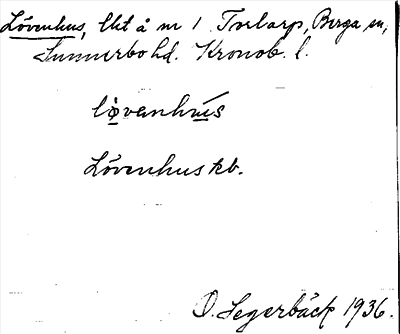 Lövenhus, lht å nr 1 Torlarp, Berga sn,
Sunnerbo hd. Kronob. l.
løvenhús
Lövenhus kb.
O. Segerbäck 1936.